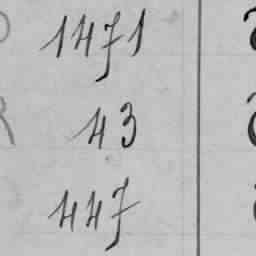 1471
43
447